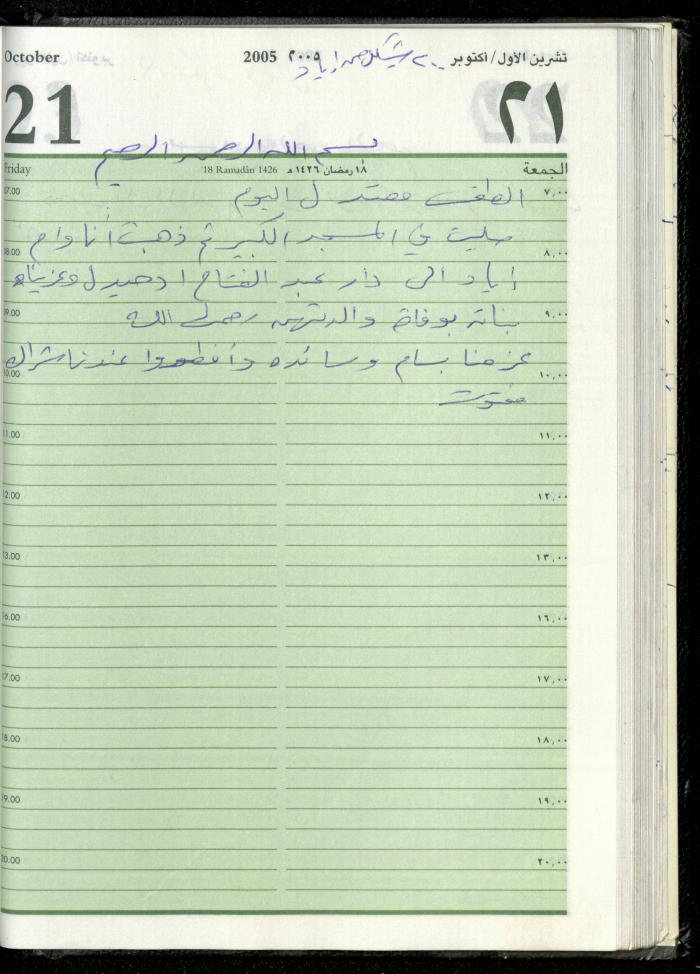 October 2005 ٢٠٠٥ تشرين الأول/أكتوبر
٢٠٠ شيكل من اياد
21 ٢١
بسم الله الرحمن الرحيم
Friday 18 Ramadân 1426 ١٨ رمضان ١٤٢٦ هـ الجمعة
الطقس معتدل اليوم
صليت في المسجد الكبير ثم ذهبت أنا وام
اياد الى دار عبد الفتاح ادحيدل وعزينا
بناته بوفاة والدتهن رحمها الله
عزمنا بسام وسائده وأفطروا عندنا
07.00 ٧,٠٠
08.00 ٨,٠٠
09.00 ٩,٠٠
10.00 ١٠,٠٠
11.00 ١١,٠٠
12.00 ١٢,٠٠
13.00 ١٣,٠٠
16.00 ١٦,٠٠
17.00 ١٧,٠٠
18.00 ١٨,٠٠
19.00 ١٩,٠٠
20.00 ٢٠,٠٠